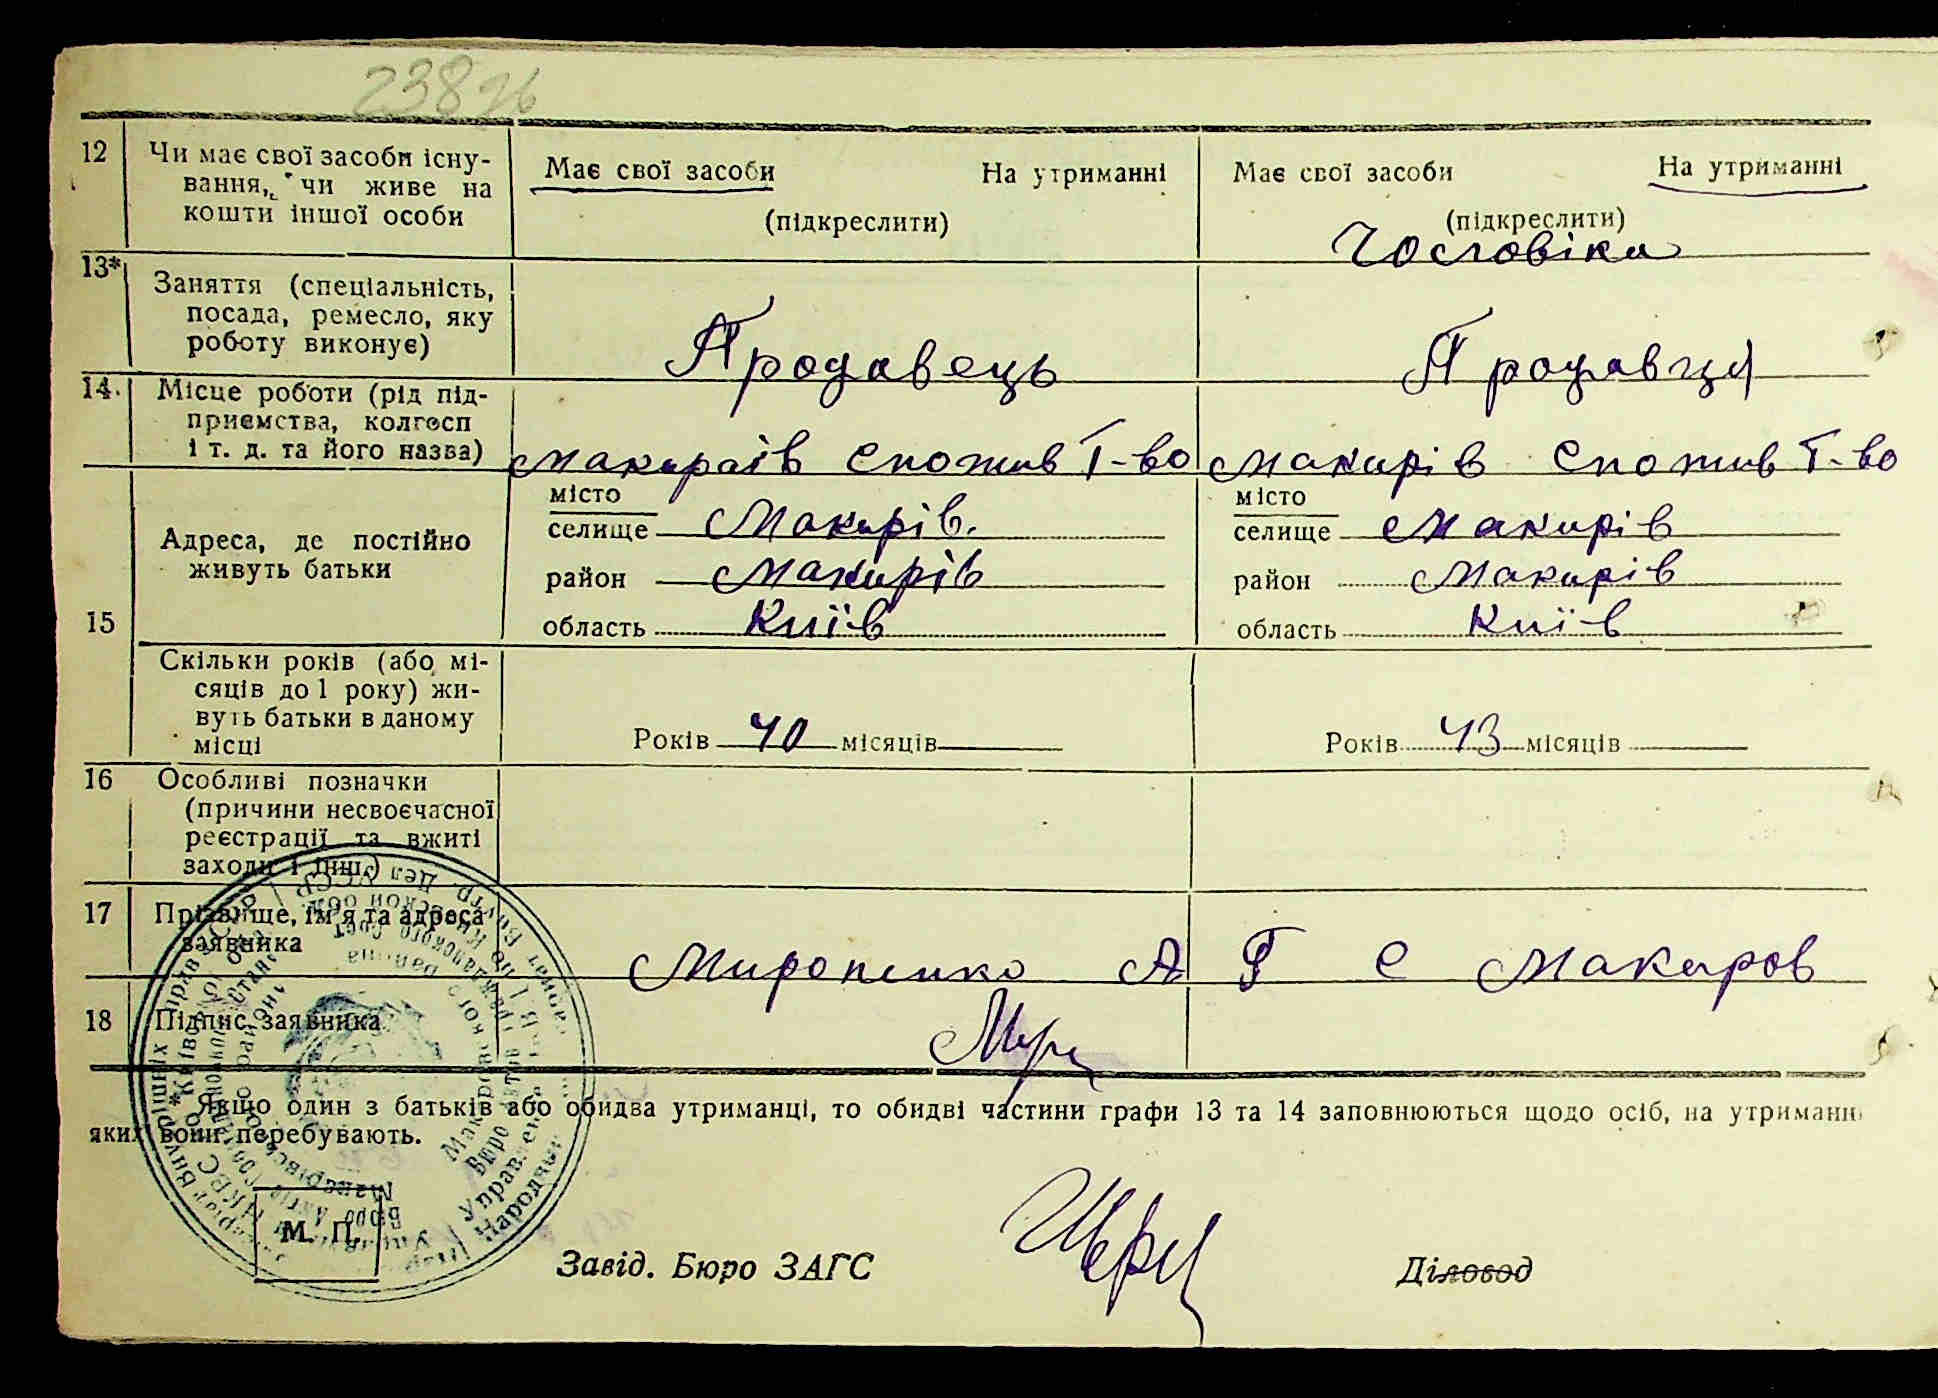 238
12 Чи має свої засоби існу-
вання, чи живе на
кошти іншої особи
Має свої засоби На утриманні
(підкреслити)
Має свої засоби На утриманні
(підкреслити)
Чоловіка
13* Заняття (спеціальність,
посада, ремесло, яку
роботу виконує)
Продавець
Продавця
14. Місце роботи (рід під-
приємства, колгосп
і т. д. та його назва)
Макарів Спожив Т-во
Макарів Спожив Т-во
15 Адреса, де постійно
живуть батьки
місто
селище Макарів.
район Макарів
область Київ
місто
селище Макарів
район Макарів
область Київ
Скільки років (або мі-
сяців до 1 року) жи-
вуть батьки в даному
місці
Років 40 місяців
Років 43 місяців
16 Особливі позначки
(причини несвоєчасної
реєстрації та вжиті
заходи і інш.)
17 Прізвище, ім'я та адреса
заявника
Мироненко А Г с Макаров
18 Підпис заявника
* Якщо один з батьків або обидва утриманці, то обидві частини графи 13 та 14 заповнюються щодо осіб, на утриманні
яких вони перебувають.
М. П.
Завід. Бюро ЗАГС
Діловод